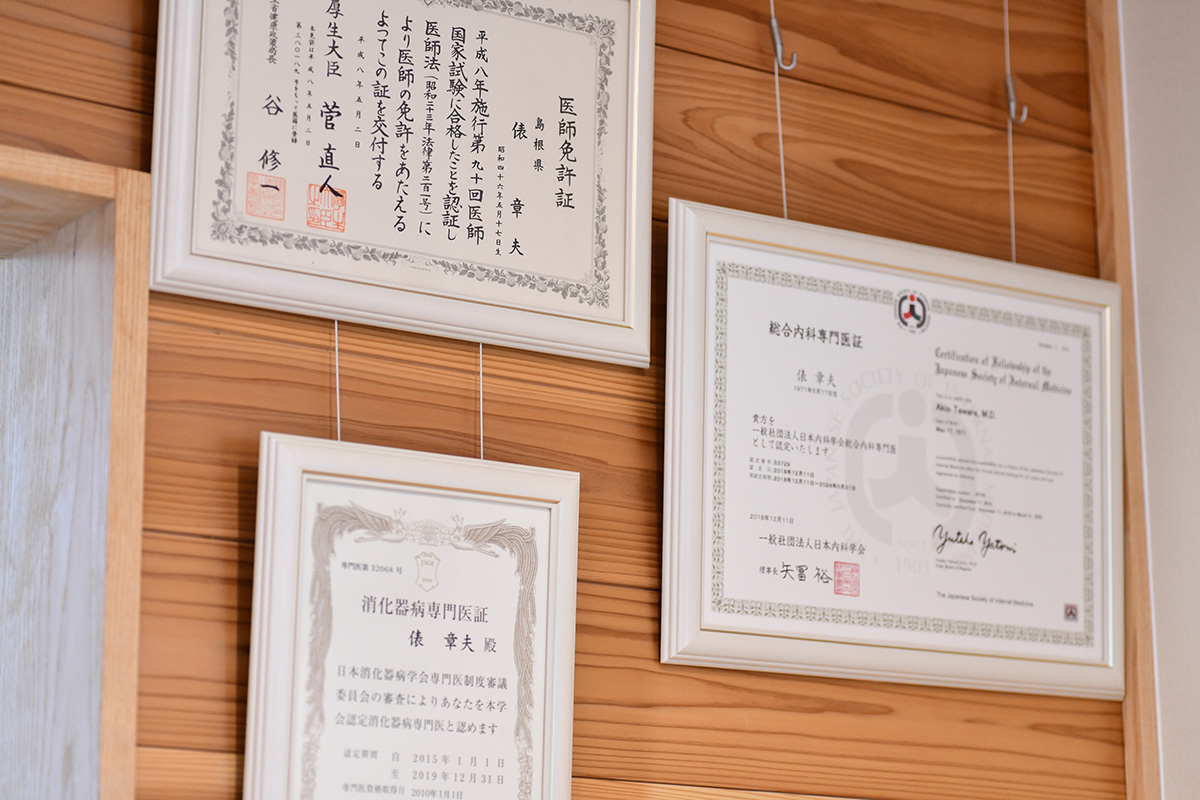 医師免許証
島根県
俵 章夫
昭和四十六年五月十七日生
平成八年施行第九十回医師
国家試験に合格したことを認証し
医師法(昭和二十三年法律第二百一号)に
より医師の免許をあたえる
よってこの証を交付する
平成八年五月二日
厚生大臣 菅 直人
本免許は平成八年五月二日
第三八〇一八九号をもって医籍に登録
健康政策局長 谷 修一
専門医第 32068 号
消化器病専門医証
俵 章夫 殿
日本消化器病学会専門医制度審議
委員会の審査によりあなたを本学
会認定消化器病専門医と認めます
認定期間 自 2015年 1月 1日
至 2019年 12月 31日
専門医資格取得日 2010年1月1日
総合内科専門医証
俵 章夫
1971年5月17日生
貴方を
一般社団法人日本内科学会総合内科専門医
として認定いたします
認定番号:32729
認定日:2018年12月11日
2018年12月11日
一般社団法人日本内科学会
理事長 矢冨 裕
Certification of Fellowship of the
Japanese Society of Internal Medicine
Akio Tawara, M.D.
May 17, 1971
The Japanese Society of Internal Medicine
SINCE
1903